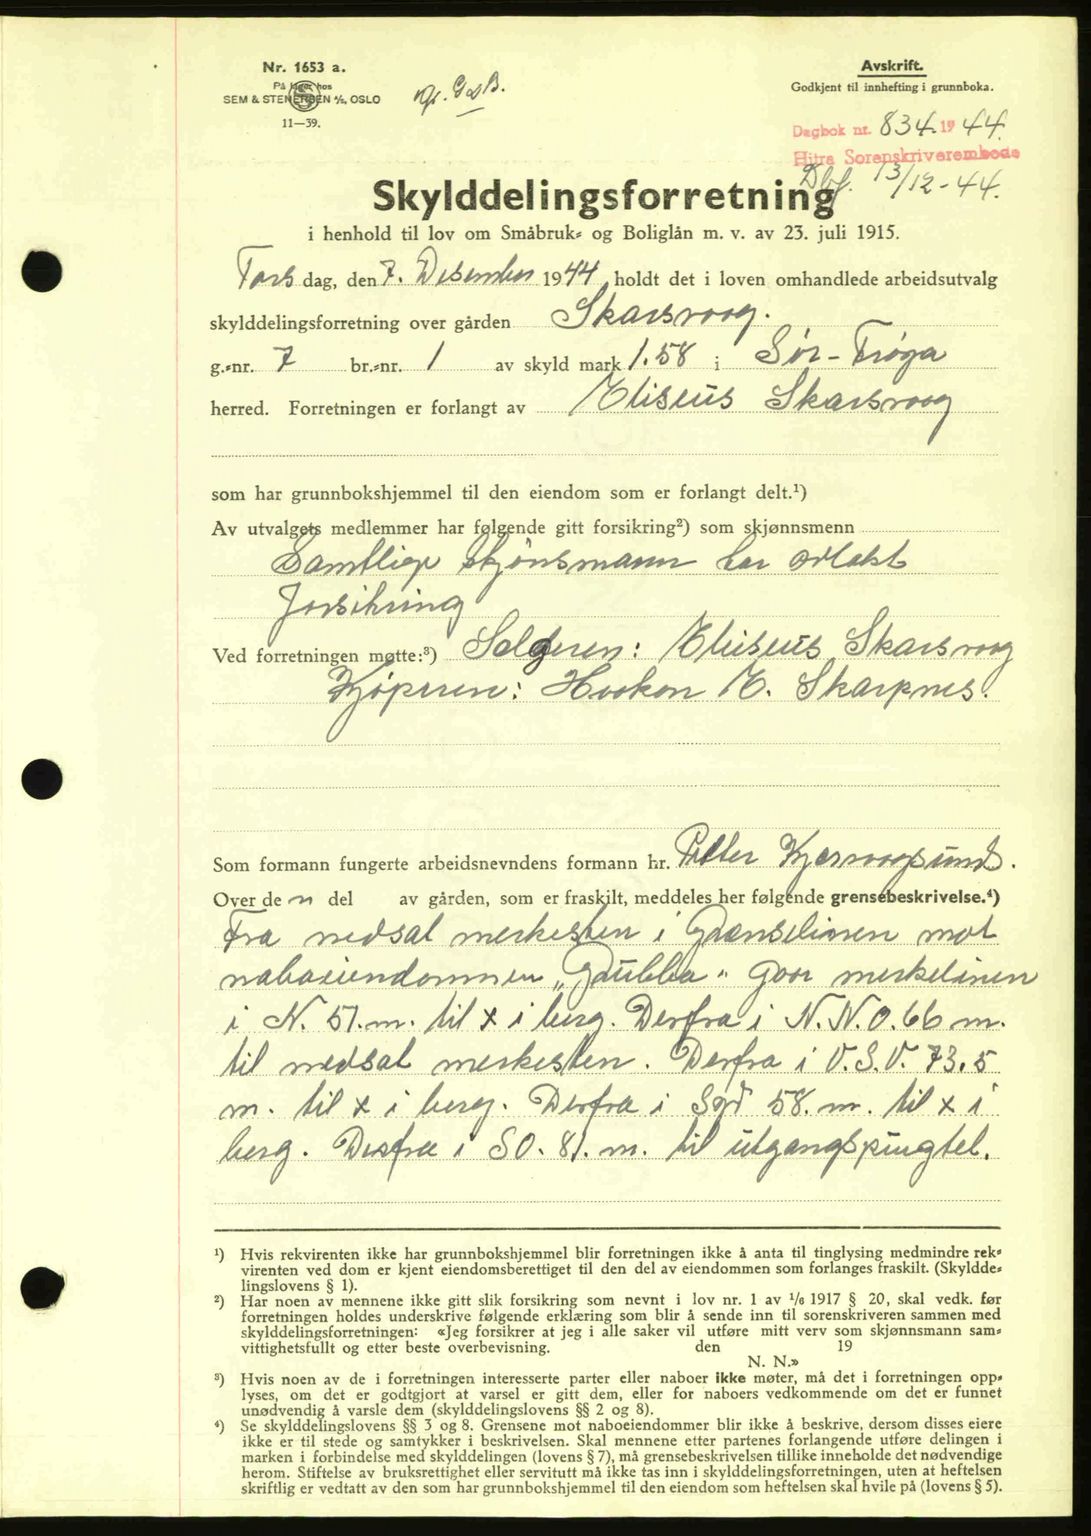 Nr. 1653 a.
På lager hos
SEM & STENERSEN A/S, OSLO
11—39.
Avskrift.
Godkjent til innhefting i grunnboka.
Dagbok nr. 834. 1944.
Hitra Sorenskriverembede
Dbf. 13/12-44.
Skylddelingsforretning
i henhold til lov om Småbruk= og Boliglån m. v. av 23. juli 1915.
Tors dag, den 7. Desember 1944 holdt det i loven omhandlede arbeidsutvalg
skylddelingsforretning over gården Skarsvaag.
g.=nr. 7 br.=nr. 1 av skyld mark 1.58 i Sør-Frøya
herred. Forretningen er forlangt av Eliseus Skarsvaag
som har grunnbokshjemmel til den eiendom som er forlangt delt.¹)
Av utvalgets medlemmer har følgende gitt forsikring²) som skjønnsmenn
Samtlige skjønsmænn har avlakt
forsikring
Ved forretningen møtte:³) Selgeren: Eliseus Skarsvaag
Kjøperen: Haakon E. Skarpnes.
Som formann fungerte arbeidsnevndens formann hr. Petter Kjervaagsund.
Over de n del av gården, som er fraskilt, meddeles her følgende grensebeskrivelse.⁴)
Fra nedsat merkesten i Grænselinen mot
naboeiendommen „Grubba" gaar merkelinen
i N. 51. m. til x i berg. Derfra i N.N.O. 66 m.
til nedsat merkesten. Derfra i V.S.V. 73.5
m. til x i berg. Derfra i Syd 58. m. til x i
berg. Derfra i SO. 81. m. til utgangspungtet.
¹) Hvis rekvirenten ikke har grunnbokshjemmel blir forretningen ikke å anta til tinglysing medmindre rek=
virenten ved dom er kjent eiendomsberettiget til den del av eiendommen som forlanges fraskilt. (Skyldde=
lingslovens § 1).
²) Har noen av mennene ikke gitt slik forsikring som nevnt i lov nr. 1 av 1/6 1917 § 20, skal vedk. før
forretningen holdes underskrive følgende erklæring som blir å sende inn til sorenskriveren sammen med
skylddelingsforretningen: «Jeg forsikrer at jeg i alle saker vil utføre mitt verv som skjønnsmann sam=
vittighetsfullt og etter beste overbevisning. den 19
N. N.»
³) Hvis noen av de i forretningen interesserte parter eller naboer ikke møter, må det i forretningen opp=
lyses, om det er godtgjort at varsel er gitt dem, eller for naboers vedkommende om det er funnet
unødvendig å varsle dem (skylddelingslovens §§ 2 og 8).
⁴) Se skylddelingslovens §§ 3 og 8. Grensene mot naboeiendommer blir ikke å beskrive, dersom disses eiere
ikke er til stede og samtykker i beskrivelsen. Skal mennene etter partenes forlangende utføre delingen i
marken i forbindelse med skylddelingen (lovens § 7), må grensebeskrivelsen tillike inneholde det nødvendige
herom. Stiftelse av bruksrettighet eller servitutt må ikke tas inn i skylddelingsforretningen, uten at heftelsen
skriftlig er vedtatt av den som har grunnbokshjemmel til den eiendom som heftelsen skal hvile på (lovens § 5).